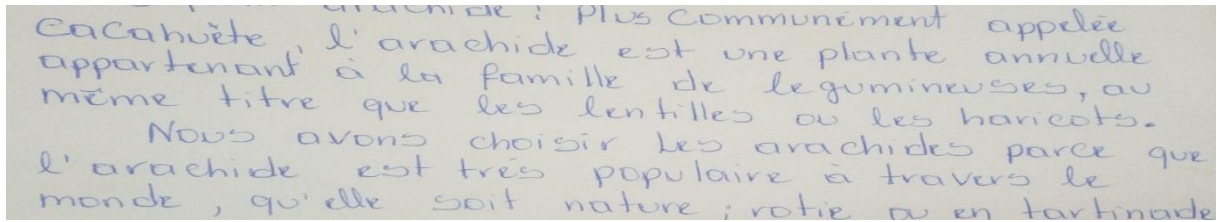 arachide : Plus Communément appelée
Cacahuète, l'arachide est une plante annuelle
appartenant à la famille de legumineuses, au
même titre que les lentilles ou les haricots.
Nous avons choisir les arachides parce que
l'arachide est trés populaire à travers le
monde, qu'elle soit nature ; rotie ou en tartinade